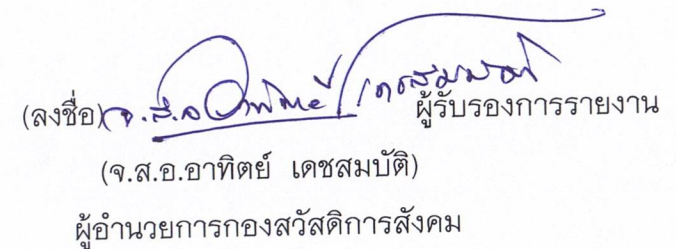 (ลงชื่อ) จ.ส.อ อาทิตย์ เดชสมบัติ ผู้รับรองการรายงาน
(จ.ส.อ.อาทิตย์ เดชสมบัติ)
ผู้อำนวยการกองสวัสดิการสังคม